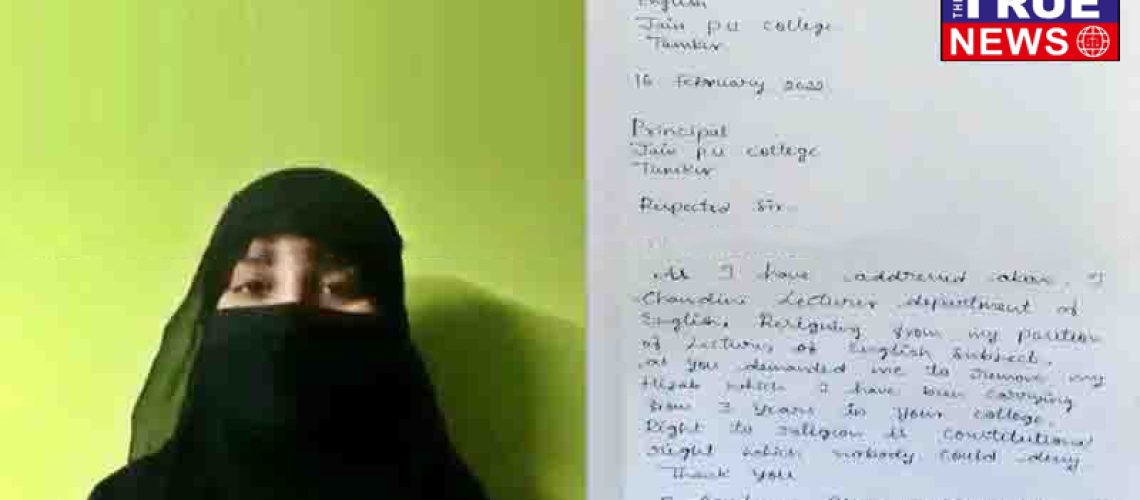 THE TRUE
NEWS
English
Jain pu college
Tumkur
16 February 2022
Principal
Jain pu college
Tumkur
Respected Sir
As I have addressed above, I
Chandini Lecturer department of
English, Resigning from my position
of Lecturer of English subject.
as you demanded me to remove my
Hizab which I have been carrying
from 3 years in your college.
Right to religion is constitutional
right which nobody could deny
Thank you